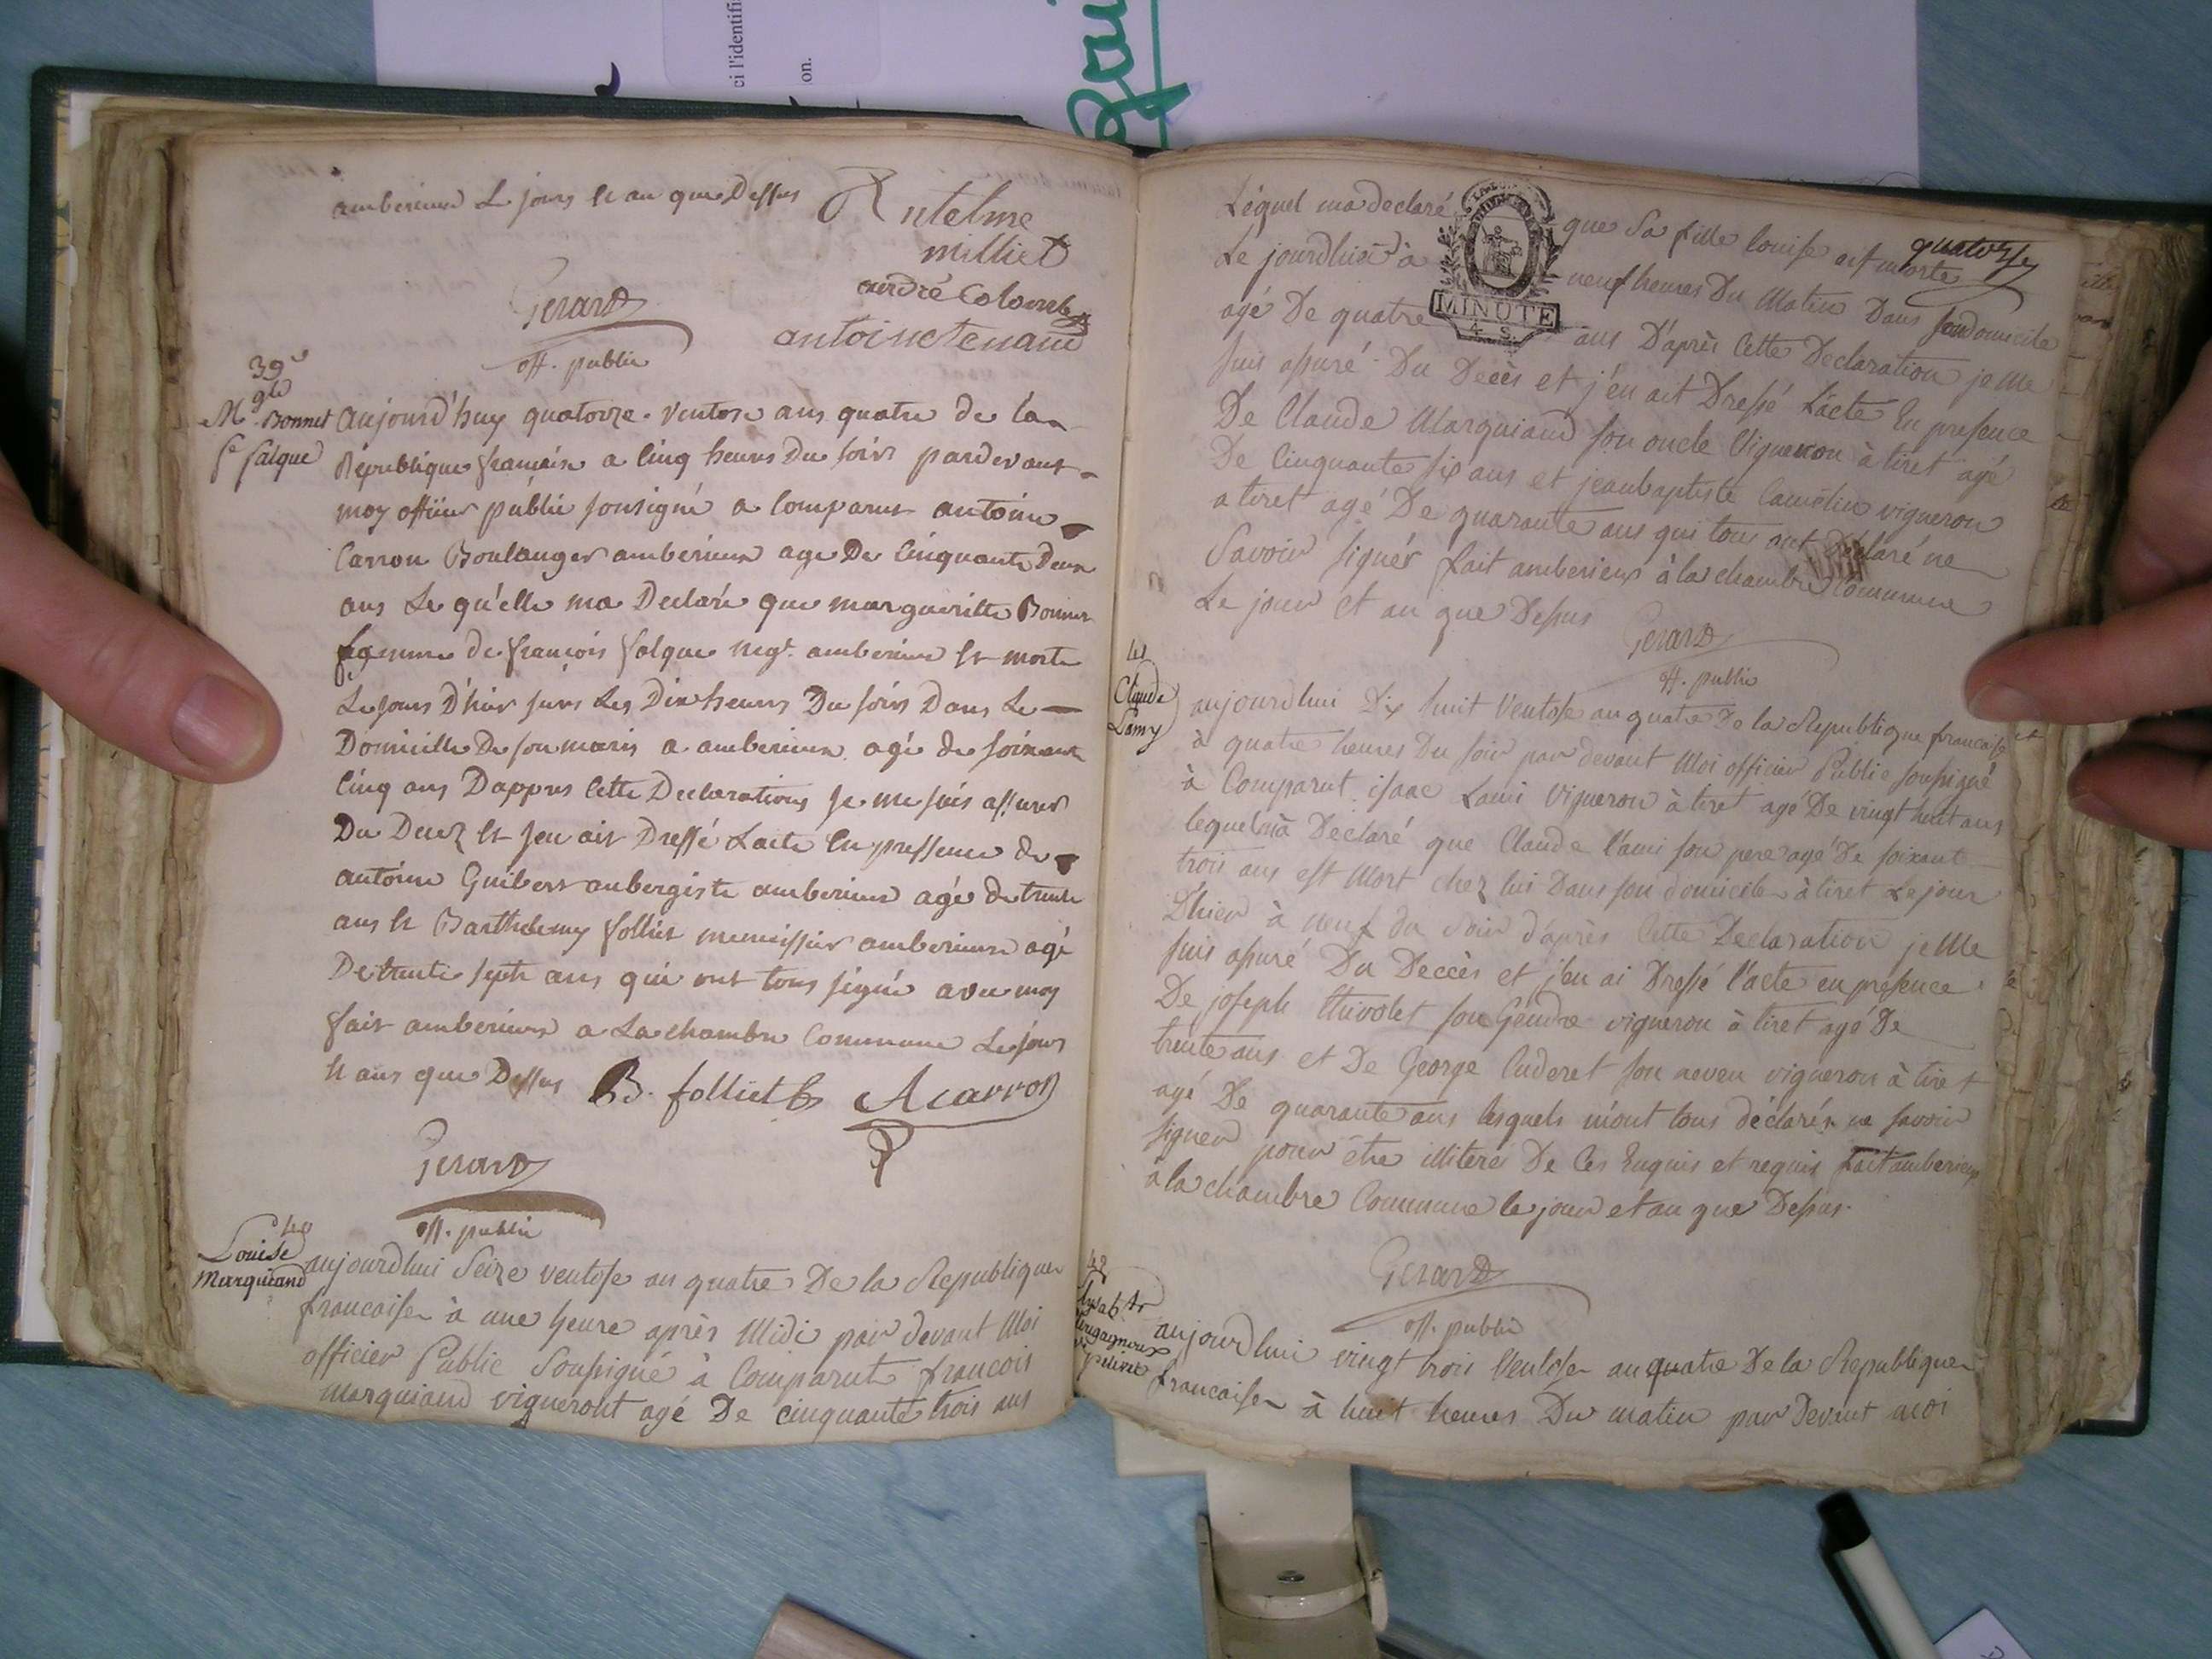 ci l'identifi
on.
amberieux Le jours Et an que Dessus
Antelme
milliet
andré Colomb
antoine tenand
Gerard
off. public
39e
Mgte Bonnet
fe falque
aujourd'huy quatorze ventose ans quatre de la
République française a Cinq heures Du soirs pardevant
moy officier public sousigné a Comparut antoine
Carron Boulanger amberieux age De Cinquante Deux
ans Le qu'elle ma Declaré que margueritte Bonnet
fegemme de françois falque negt. amberieux Et morte
Le jours D'hier surs Les Dix heures Du soirs Dans Le
Domicille De son maris a amberieux agé de soixante
Cinq ans Dappres Cette Declarations Je me suis assurer
Du Decez Et Jen ait Dressé Lacte En pressence de
antoine Guibert aubergiste amberieux agé de trente
ans Et Barthelemy folliet menuissier amberieux agé
De trente septe ans qui ont tous signé avec moy
fait amberieux a La chambre Commune Le jours
Et ans que Dessus
B. folliet
A carron
Gerard
off. public
40
Louise
Marquiand
aujourdhui Seize ventose an quatre De la Republique
francaise à une heure après Midi par devant Moi
officier Public Soussigné à Comparut francois
marquiand vigneront agé De cinquante trois ans
quatorze
Léquel ma declaré que Sa fille louise est morte
Le jourdhui à neuf heures Du Matin Dans son domicile
agé De quatre ans D'après Cette Declaration je Me
suis assuré Du Decès et j'en ait Dressé L'acte En presence
De Claude Marquiand son oncle Vigneron à tiret agé
De Cinquante six ans et jean baptiste Camelin vigneron
a tiret agé De quarante ans qui tous ont declaré ne
Savoir signér fait amberieux à la chambre Commune
Le jour et an que Dessus
MINUTE
4. S.
Gerard
off. public
41
Claude
Lamy
aujourdhui Dix huit Ventose an quatre De la Republique francaise
à quatre heures Du soir par devant Moi officier Public soussigné
à Comparut isaac Lami Vigneron à tiret agé De vingt huit ans
lequel m'a Déclaré que Claude l'ami son pere agé De soixant
trois ans est Mort chez lui Dans son domicile à tiret Le jour
D'hier à neuf du soir d'après Cette Declaration je Me
suis assuré Du Deccès et j'en ai Dressé l'acte en présence
De joseph thivolet son Gendre vigneron à tiret agé De
trente ans et De George Cuderet son neveu vigneron à tiret
agé De quarante ans lesquels m'ont tous déclarés ne savoir
signer pour être illiteré De Ces Enquis et requis fait amberieux
à la chambre Commune le jour et an que Dessus.
Gerard
off. public
42
aujourdhui vingt trois Ventose an quatre De la Republique
francaise à huit heures Du matin par Devant moi